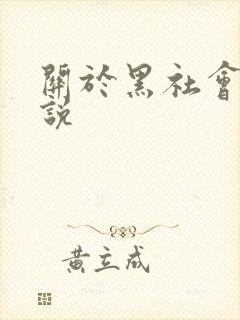 關於黑社會
說
黃立成